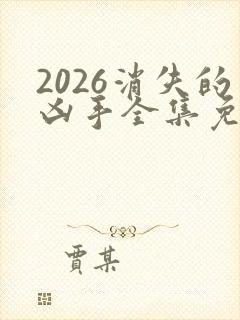 2026消失的
凶手全集免
贾某